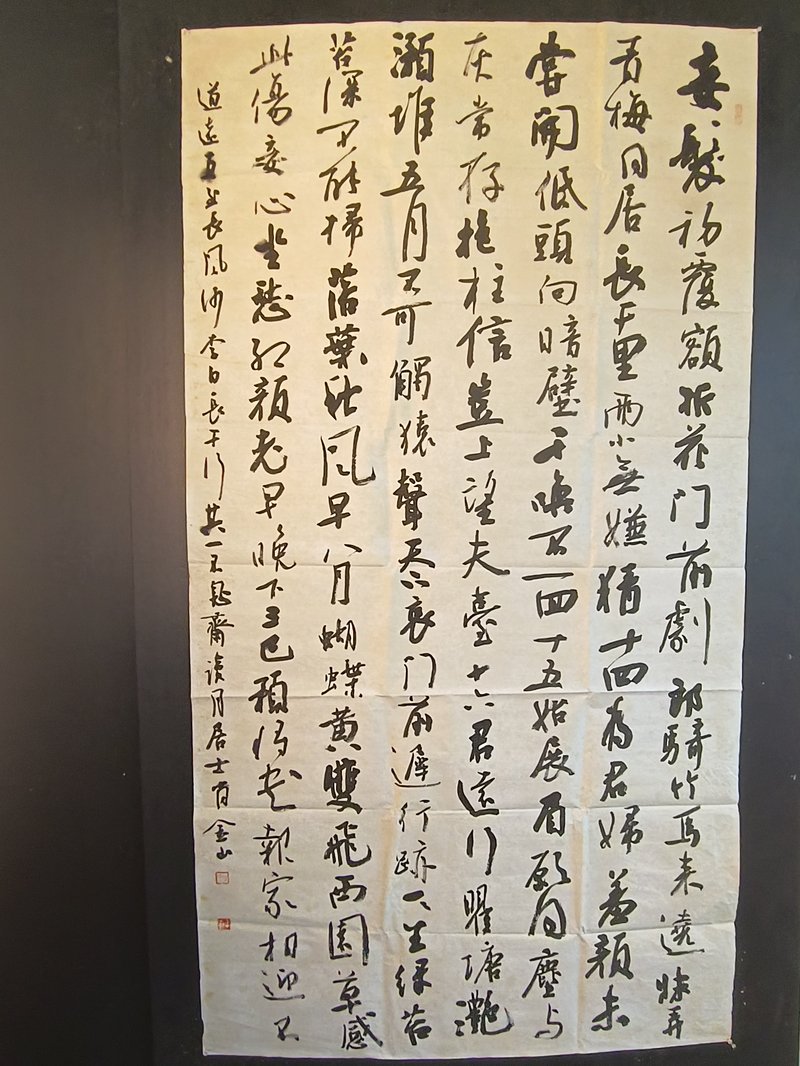 妾髮初覆額折花門前劇郎騎竹馬来遶牀弄
青梅同居長干里兩小無嫌猜十四為君婦羞顔未
嘗開低頭向暗壁千喚不一回十五始展眉願同塵与
灰常存抱柱信豈上望夫臺十六君遠行瞿塘灔
澦堆五月不可觸猿聲天上哀門前遲行跡一一生緑苔
苔深不能掃落葉秋風早八月蝴蝶黄雙飛西園草感
此傷妾心坐愁紅顔老早晚下三巴預將書報家相迎不
道遠直至長風沙李白長干行其一不齋讀月居士肖金山